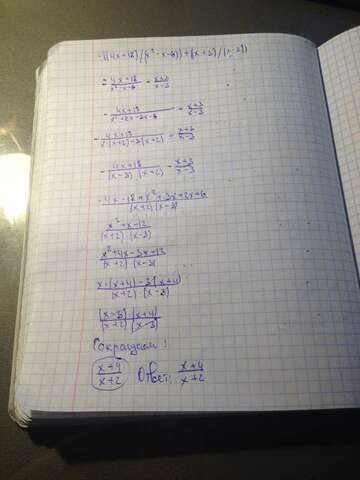 -((4x+18)/(x²-x-6))+(x+3)/(x-3))
= - 4x+18/x²-x-6 + x+3/x-3
- 4x+18/x²+2x-3x-6 + x+3/x-3
- 4x+18/x·(x+2)-3(x+2) + x+3/x-3
- 4x+18/(x-3)·(x+2) + x+3/x-3
-4x-18+x²+3x+2x+6/(x+2)·(x-3)
x²+x-12/(x+2)·(x-3)
x²+4x-3x-12/(x+2)·(x-3)
x·(x+4)-3(x+4)/(x+2)·(x-3)
(x-3)·(x+4)/(x+2)·(x-3)
Сокращаем!
x+4/x+2 Ответ: x+4/x+2